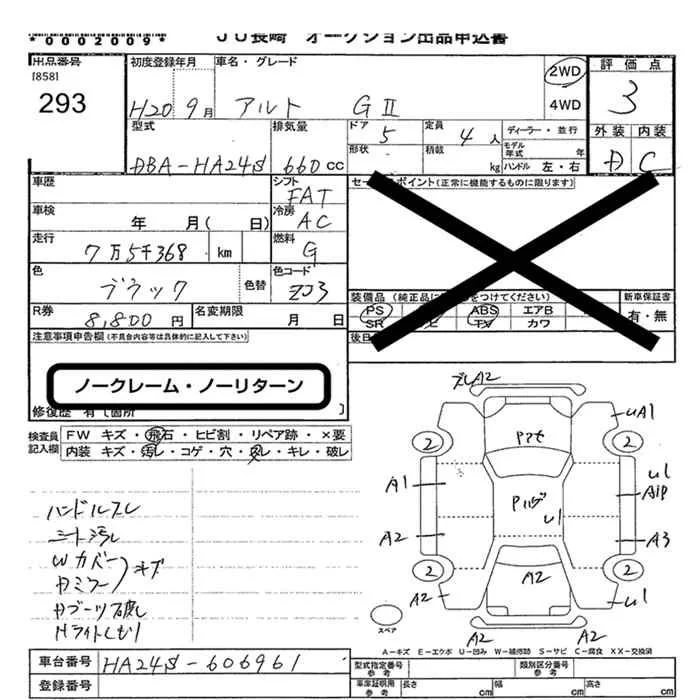 *0002009* JU長崎 オークション出品申込書
出品番号 初度登録年月 車名・グレード 2WD 評価点
[858]
293 H20 9月 アルト GⅡ 4WD 3
型式 排気量 ドア 定員 ディーラー・並行 外装 内装
DBA-HA24S 660cc 5 4人 モデル年式 年
形状 積載 kg ハンドル 左・右 D C
車歴 シフト FAT セールスポイント(正常に機能するものに限ります)
車検 年 月( 日) 冷房 AC
走行 7万5千368 km 燃料 G
色 ブラック 色替 色コード ZJ3
装備品 新車保証書
R券 8,800円 名変期限 月 日
PS ABS エアB 有・無
SR TV カワ
注意事項申告欄(不具合内容等は具体的に記入して下さい) 後日
ノークレーム・ノーリターン
修復歴 有〔箇所 〕
検査員記入欄 FW キズ・飛石・ヒビ割・リペア跡・×要
内装 キズ・汚れ・コゲ・穴・戻し・キレ・破レ
ハンドルスレ
シート汚し
Wカバー
Dミラー キズ
Hライトくもり
A2
Pアセ
UA1
2 2
A1 U1
A1P
U1
A2 A3
2 2
A2 A2 U1
スペア A2 A2
A-キズ E-エクボ U-凹み W-補修跡 S-サビ C-腐食 XX-交換済
車台番号 HA24S-606961 型式指定番号 参考 類別区分番号 参考
登録番号 車庫証明用 参考 長さ cm 幅 cm 高さ cm